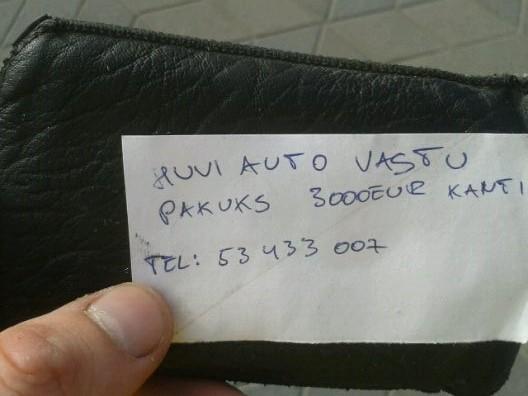 HUVI AUTO VASTU
PAKUKS 3000EUR KANTI
TEL: 53 433 007